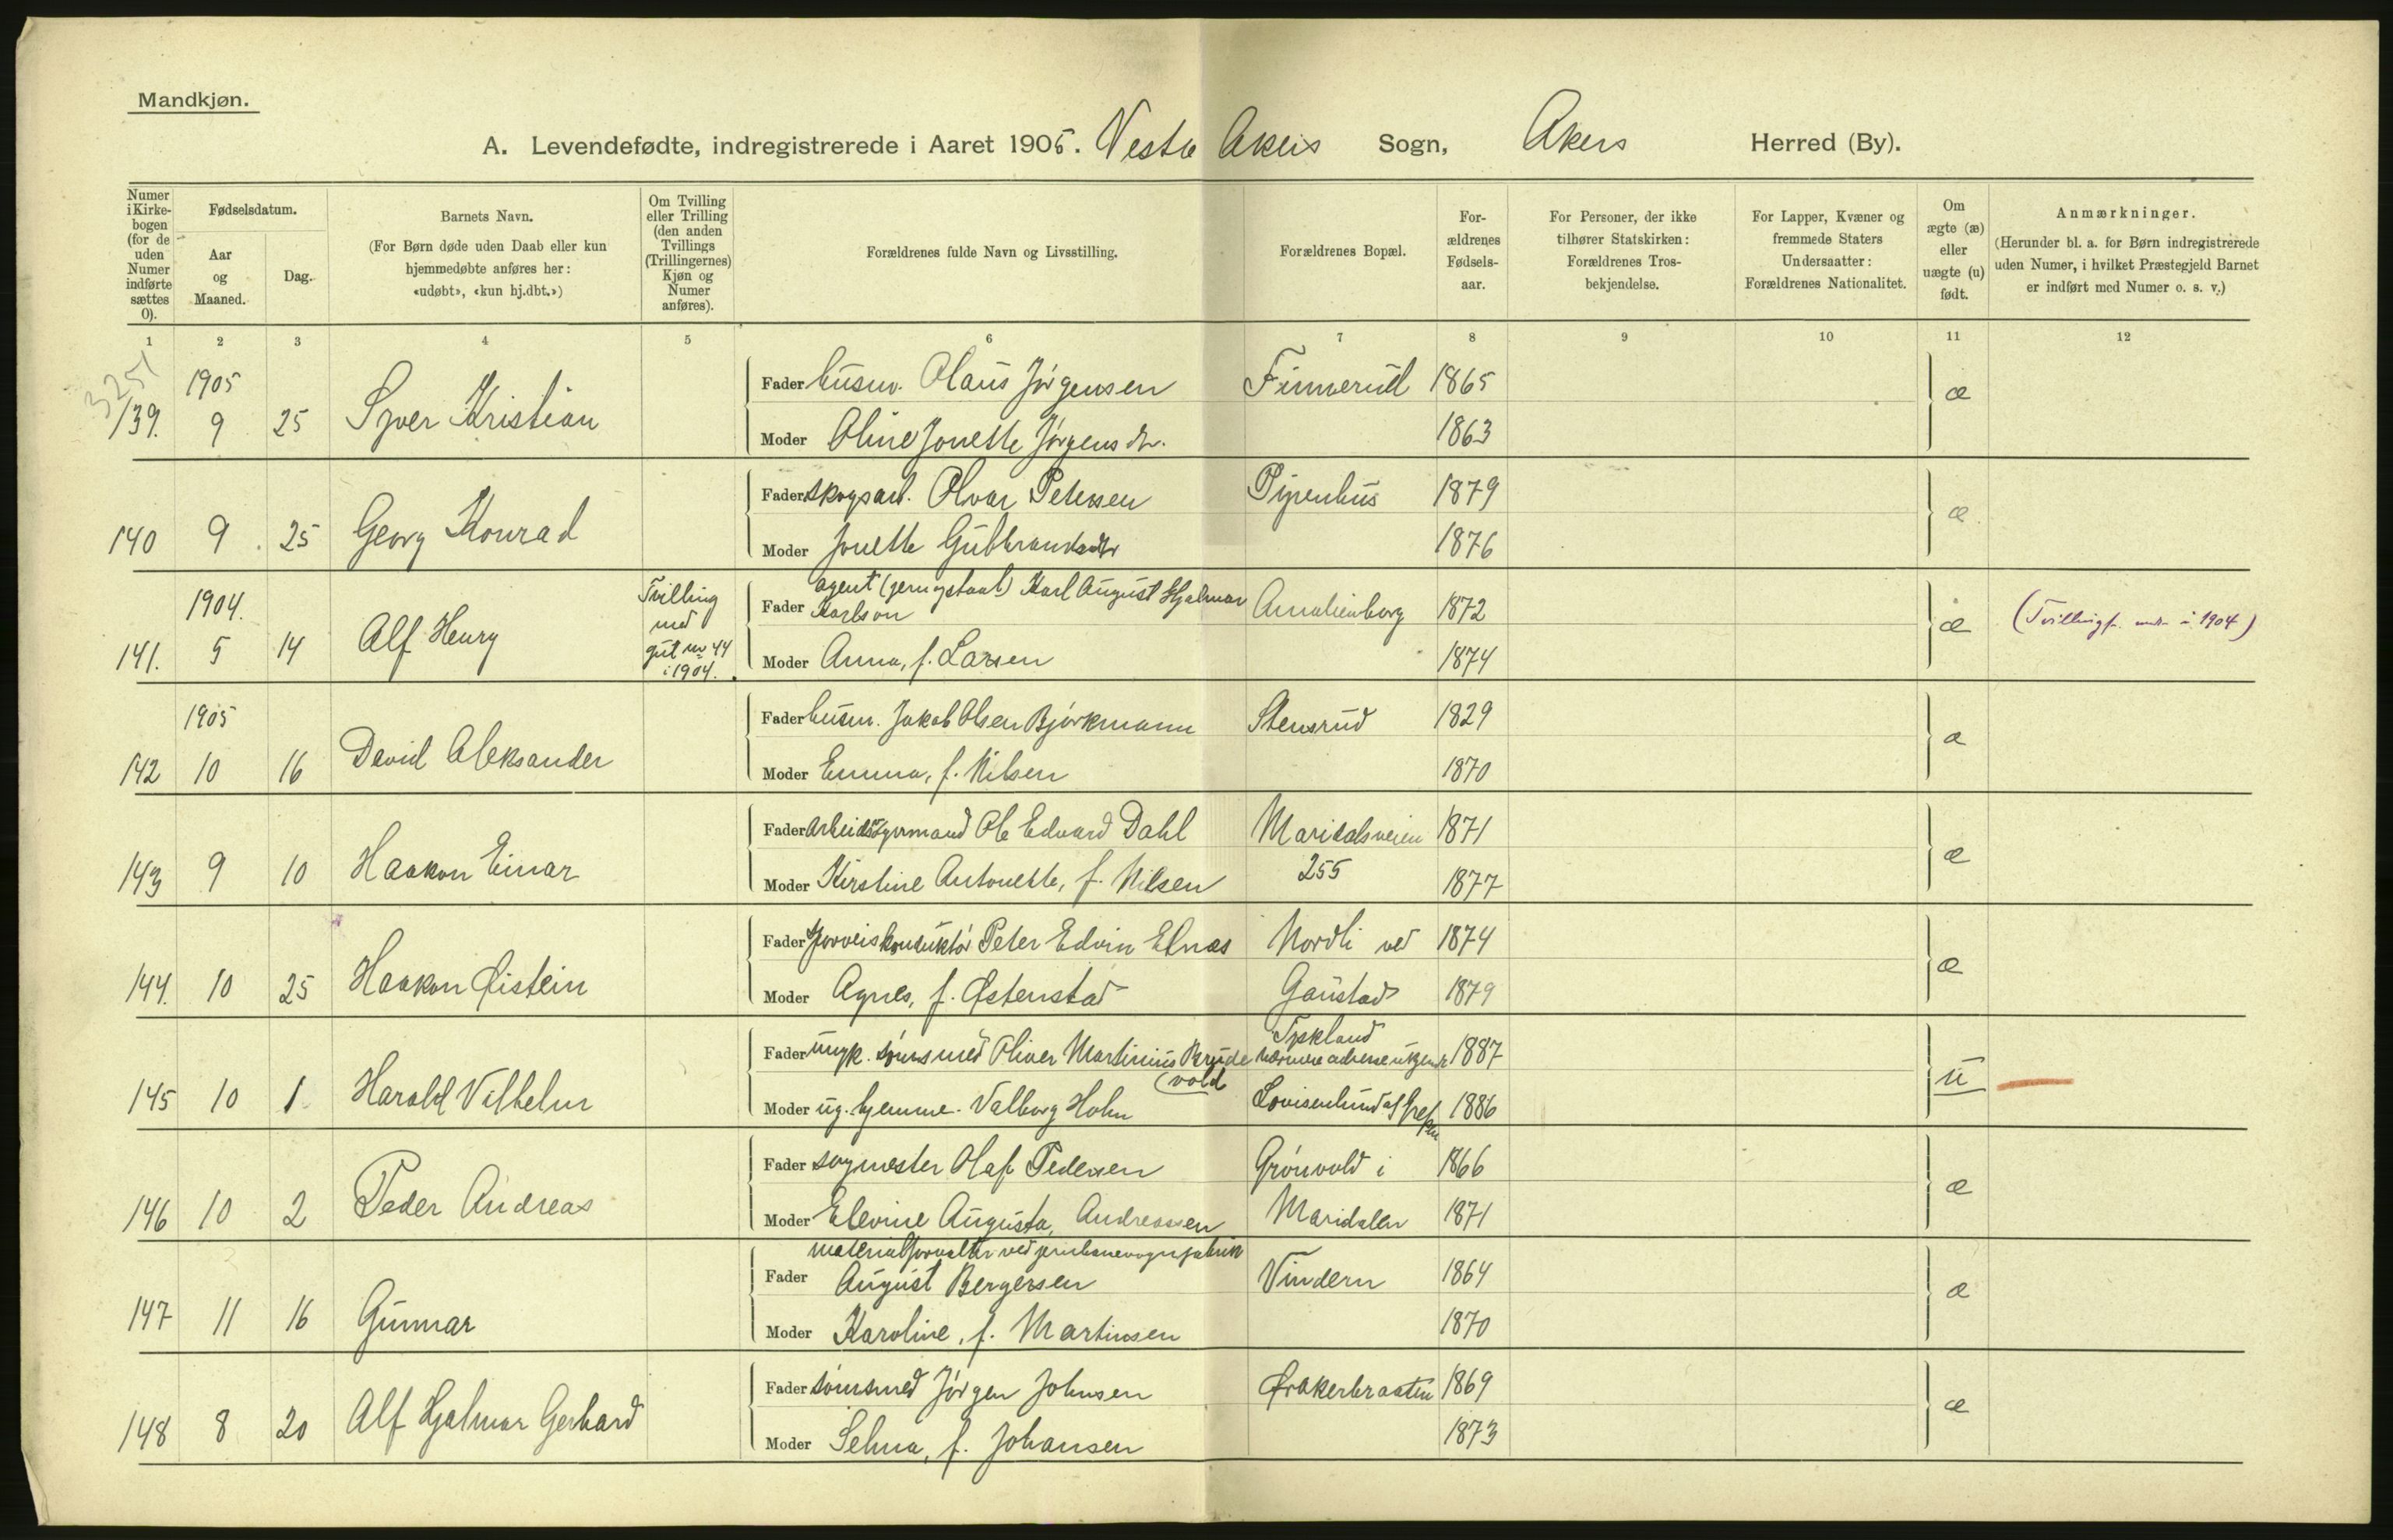 Mandkjøn.
A. Levendefødte, indregistrerede i Aaret 1905. Vestre Akers Sogn, Akers Herred (By).
Numer i Kirkebogen (for de uden Numer indførte sættes 0).
Fødselsdatum.
Aar og Maaned.
Dag.
Barnets Navn.
(For Børn døde uden Daab eller kun hjemmedøbte anføres her: «udøbt», «kun hj.dbt.»)
Om Tvilling eller Trilling (den anden Tvillings (Trillingernes) Kjøn og Numer anføres).
Forældrenes fulde Navn og Livsstilling.
Forældrenes Bopæl.
Forældrenes Fødselsaar.
For Personer, der ikke tilhører Statskirken: Forældrenes Trosbekjendelse.
For Lapper, Kvæner og fremmede Staters Undersaatter: Forældrenes Nationalitet.
Om ægte (æ) eller uægte (u) født.
Anmærkninger.
(Herunder bl. a. for Børn indregistrerede uden Numer, i hvilket Præstegjeld Barnet er indført med Numer o. s. v.)
1 2 3 4 5 6 7 8 9 10 11 12
3251
1905
139. 9 25 Syver Kristian
Fader husm. Olaus Jørgensen Finnerud 1865 æ
Moder Oline Jonette Jørgensdtr. 1863
140 9 25 Georg Konrad
Fader skogsarb. Olvar Petersen Pipenhus 1879 æ
Moder Jonette Gulbrandsdtr 1876
1904.
141. 5 14 Alf Henry
Tvilling med gut no 44 i 1904.
Fader agent (jernogstaal) Karl August Hjalmar Karlson Amalienborg 1872 æ
Moder Anna, f. Larsen 1874
(Tvillingf. i 1904)
1905
142 10 16 David Aleksander
Fader husm. Jakob Olsen Bjørkmann Stensrud 1829 æ
Moder Emma, f. Nilsen 1870
143 9 10 Haakon Einar
Fader Arbeidsformand Ole Edvard Dahl Maridalsveien 1871 æ
Moder Kirstine Antonette, f. Nilsen 255 1877
144. 10 25 Haakon Øistein
Fader Sporveiskonduktør Peter Edvin Elnæs Nordli ved 1874 æ
Moder Agnes, f. Østenstad Gaustad 1879
145 10 1 Harald Vilhelm
Fader ungk. sømsmed Oliver Martinius Brydevold Tyskland nærmere adresse ukjendt 1887 u
Moder ug. hjemme. Valborg Holm Lovisenlund af Grefsen 1886
146 10 2 Peder Andreas
Fader sagmester Olaf Pedersen Grønvold i 1866 æ
Moder Elevine Augusta, Andreassen Maridalen 1871
147 11 16 Gunnar
Fader materialforvalter ved jernbanevognfabrik August Bergersen Vindern 1864 æ
Moder Karoline, f. Martinsen 1870
148 8 20 Alf Hjalmar Gerhard
Fader sømsmed Jørgen Johnsen Ørakerbraaten 1869 æ
Moder Selma, f. Johansen 1873